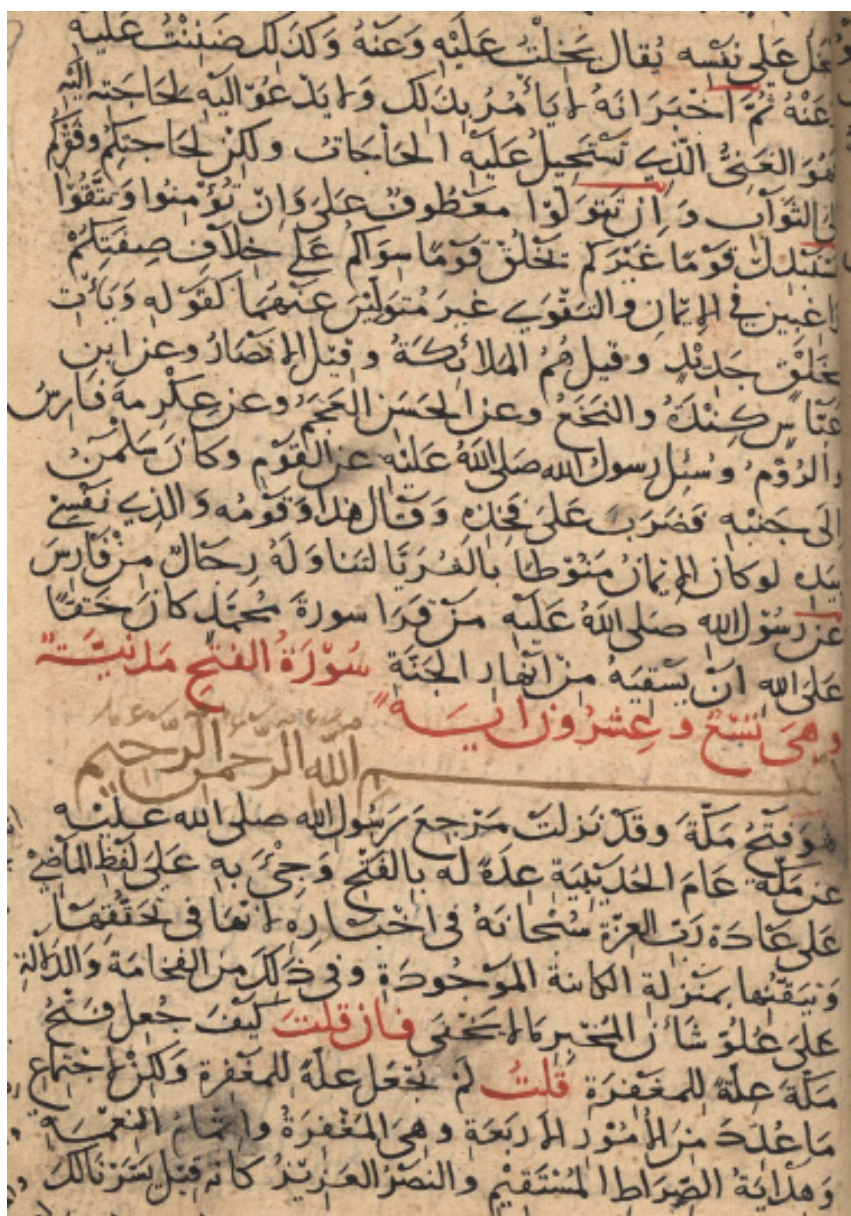 يبخل على نفسه يقال بخلت عليه وعنه وكذلك ضننت عليه
وعنه ثم اخبر انه لا يأمر بذلك ولا يدعو اليه لحاجته اليه
فهو الغني الذي تستحيل عليه الحاجات ولكن لحاجتكم وفقركم
الى الثواب وان تتولوا معطوف على وان تؤمنوا وتتقوا
يستبدل قوما غيركم يخلق قوما سواكم على خلاف صفتكم
راغبين في الايمان والتقوى غير متولين عنهما كقوله ويأت
بخلق جديد وقيل هم الملائكة وقيل الانصار وعن ابن
عباس كندة والنخع وعن الحسن العجم وعن عكرمة فارس
والروم وسئل رسول الله صلى الله عليه عن القوم وكان سلمن
الى جنبه فضرب على فخذه وقال هذا وقومه والذي نفسي
بيده لو كان الايمان منوطا بالثريا لتناوله رجال من فارس
عن رسول الله صلى الله عليه من قرا سورة محمد كان حقا
على الله ان يسقيه من انهار الجنة سورة الفتح مدنية
وهي تسع وعشرون اية
بسم الله الرحمن الرحيم
هو فتح مكة وقد نزلت مرجع رسول الله صلى الله عليه
عن مكة عام الحديبية عدة له بالفتح وجيء به على لفظ الماضي
على عادة رب العزة سبحانه في اخباره لانها في تحققها
وتيقنها بمنزلة الكائنة الموجودة وفي ذلك من الفخامة والدلالة
على علو شأن المخبر ما لا يخفى فان قلت كيف جعل فتح
مكة علة للمغفرة قلت لم يجعل علة للمغفرة ولكن لاجتماع
ما عدد من الامور الاربعة وهي المغفرة واتمام النعمة
وهداية الصراط المستقيم والنصر العزيز كانه قيل يسرنا لك